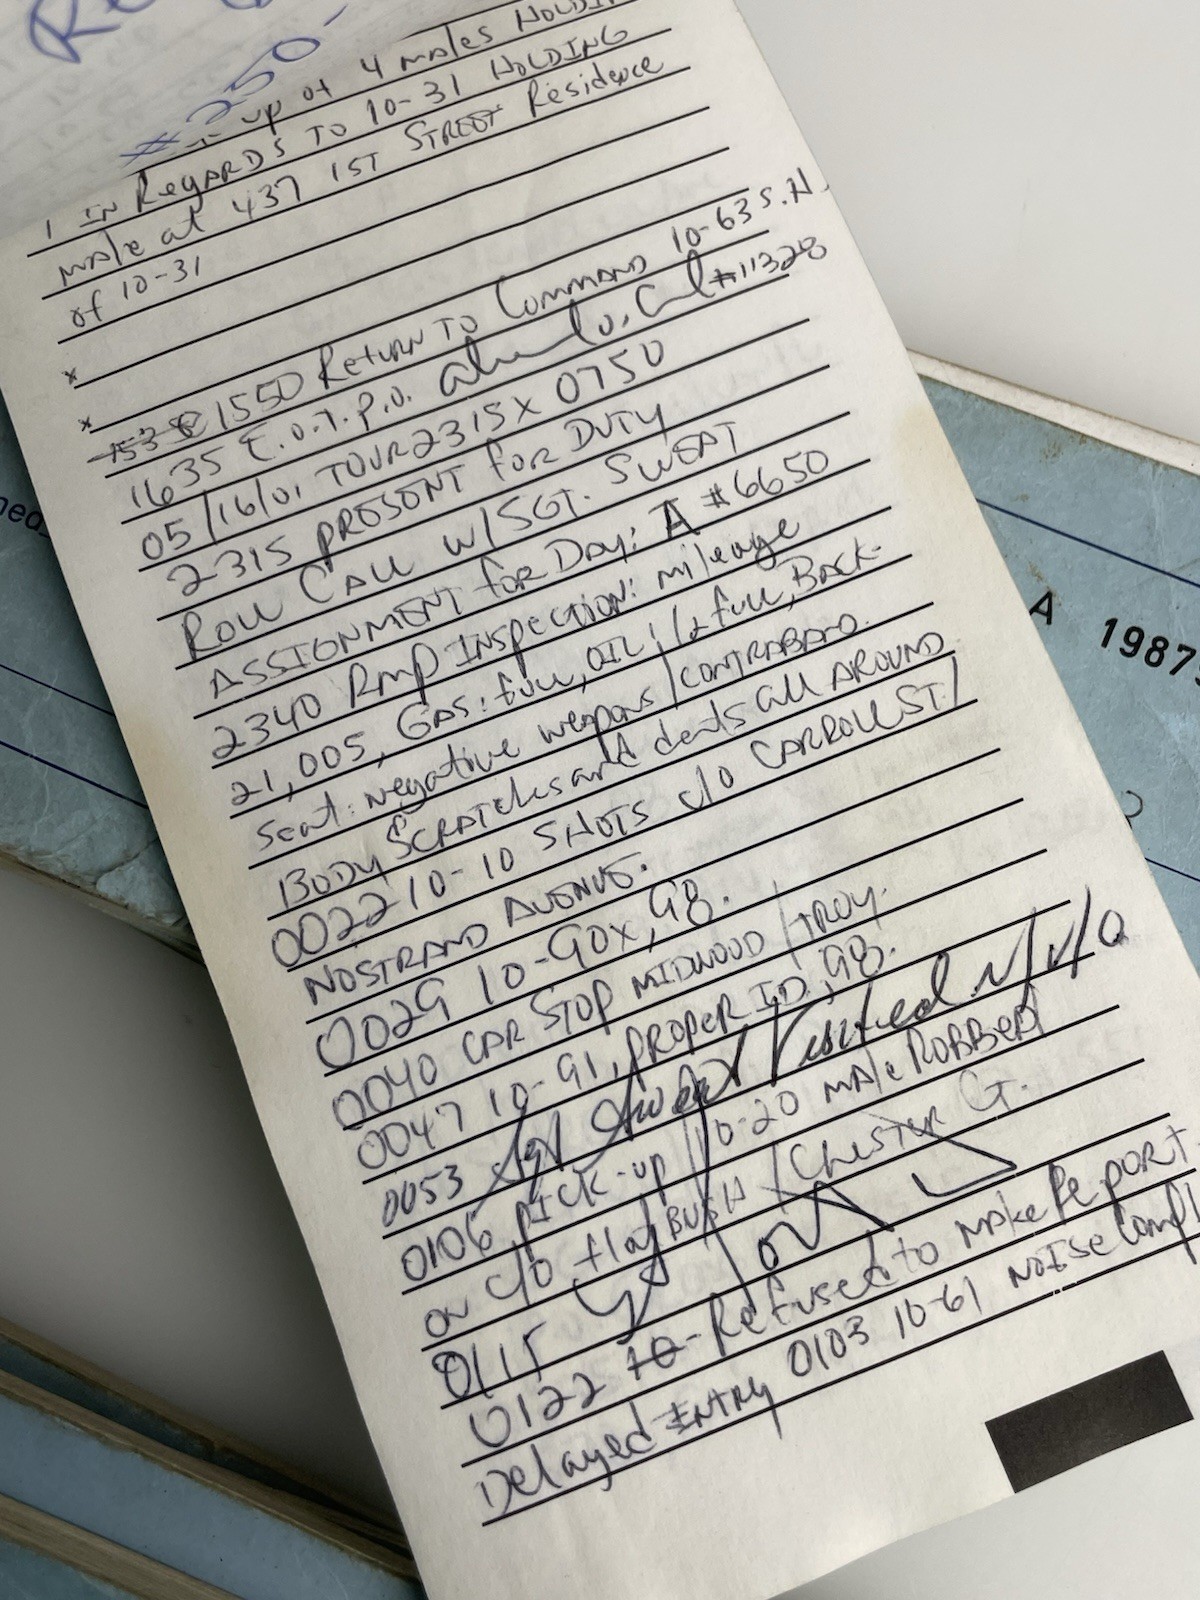 #250-
up of 4 males HOLDIN
1 IN RegARDS TO 10-31 HOLDING
male at 437 1ST STREET Residence
of 10-31
x
x
1550 Return To Command 10-63 S.H.
1635 E.O.T. P.O. #11328
05/16/01 TOUR 2315 X 0750
2315 PRESENT for DUTY
Roll CAll w/SGT. SWEAT
ASSIGNMENT for Day: A #6650
2340 RMP INSpection: mileage
21,005, GAS: full, OIL: 1/2 full, BACK-
Seat: negative weapons/CONTRABAND.
BODY SCRATChes and dents all AROUND
0022 10-10 SHOTS c/o CARROLL ST/
NOSTRAND AVENUE.
0029 10-90X, 98.
0040 CAR STOP MIDWOOD/TROY.
0047 10-91, PROPER ID, 98.
0053 Sgt Sweat Visited
0106 PICK-up 10-20 MALE ROBBED
on c/o flatBUSH/Chester
0115
0122 10- Refused to MAKe RePORT.
Delayed ENTRY 0103 10-61 NOISe Compl
A 1987